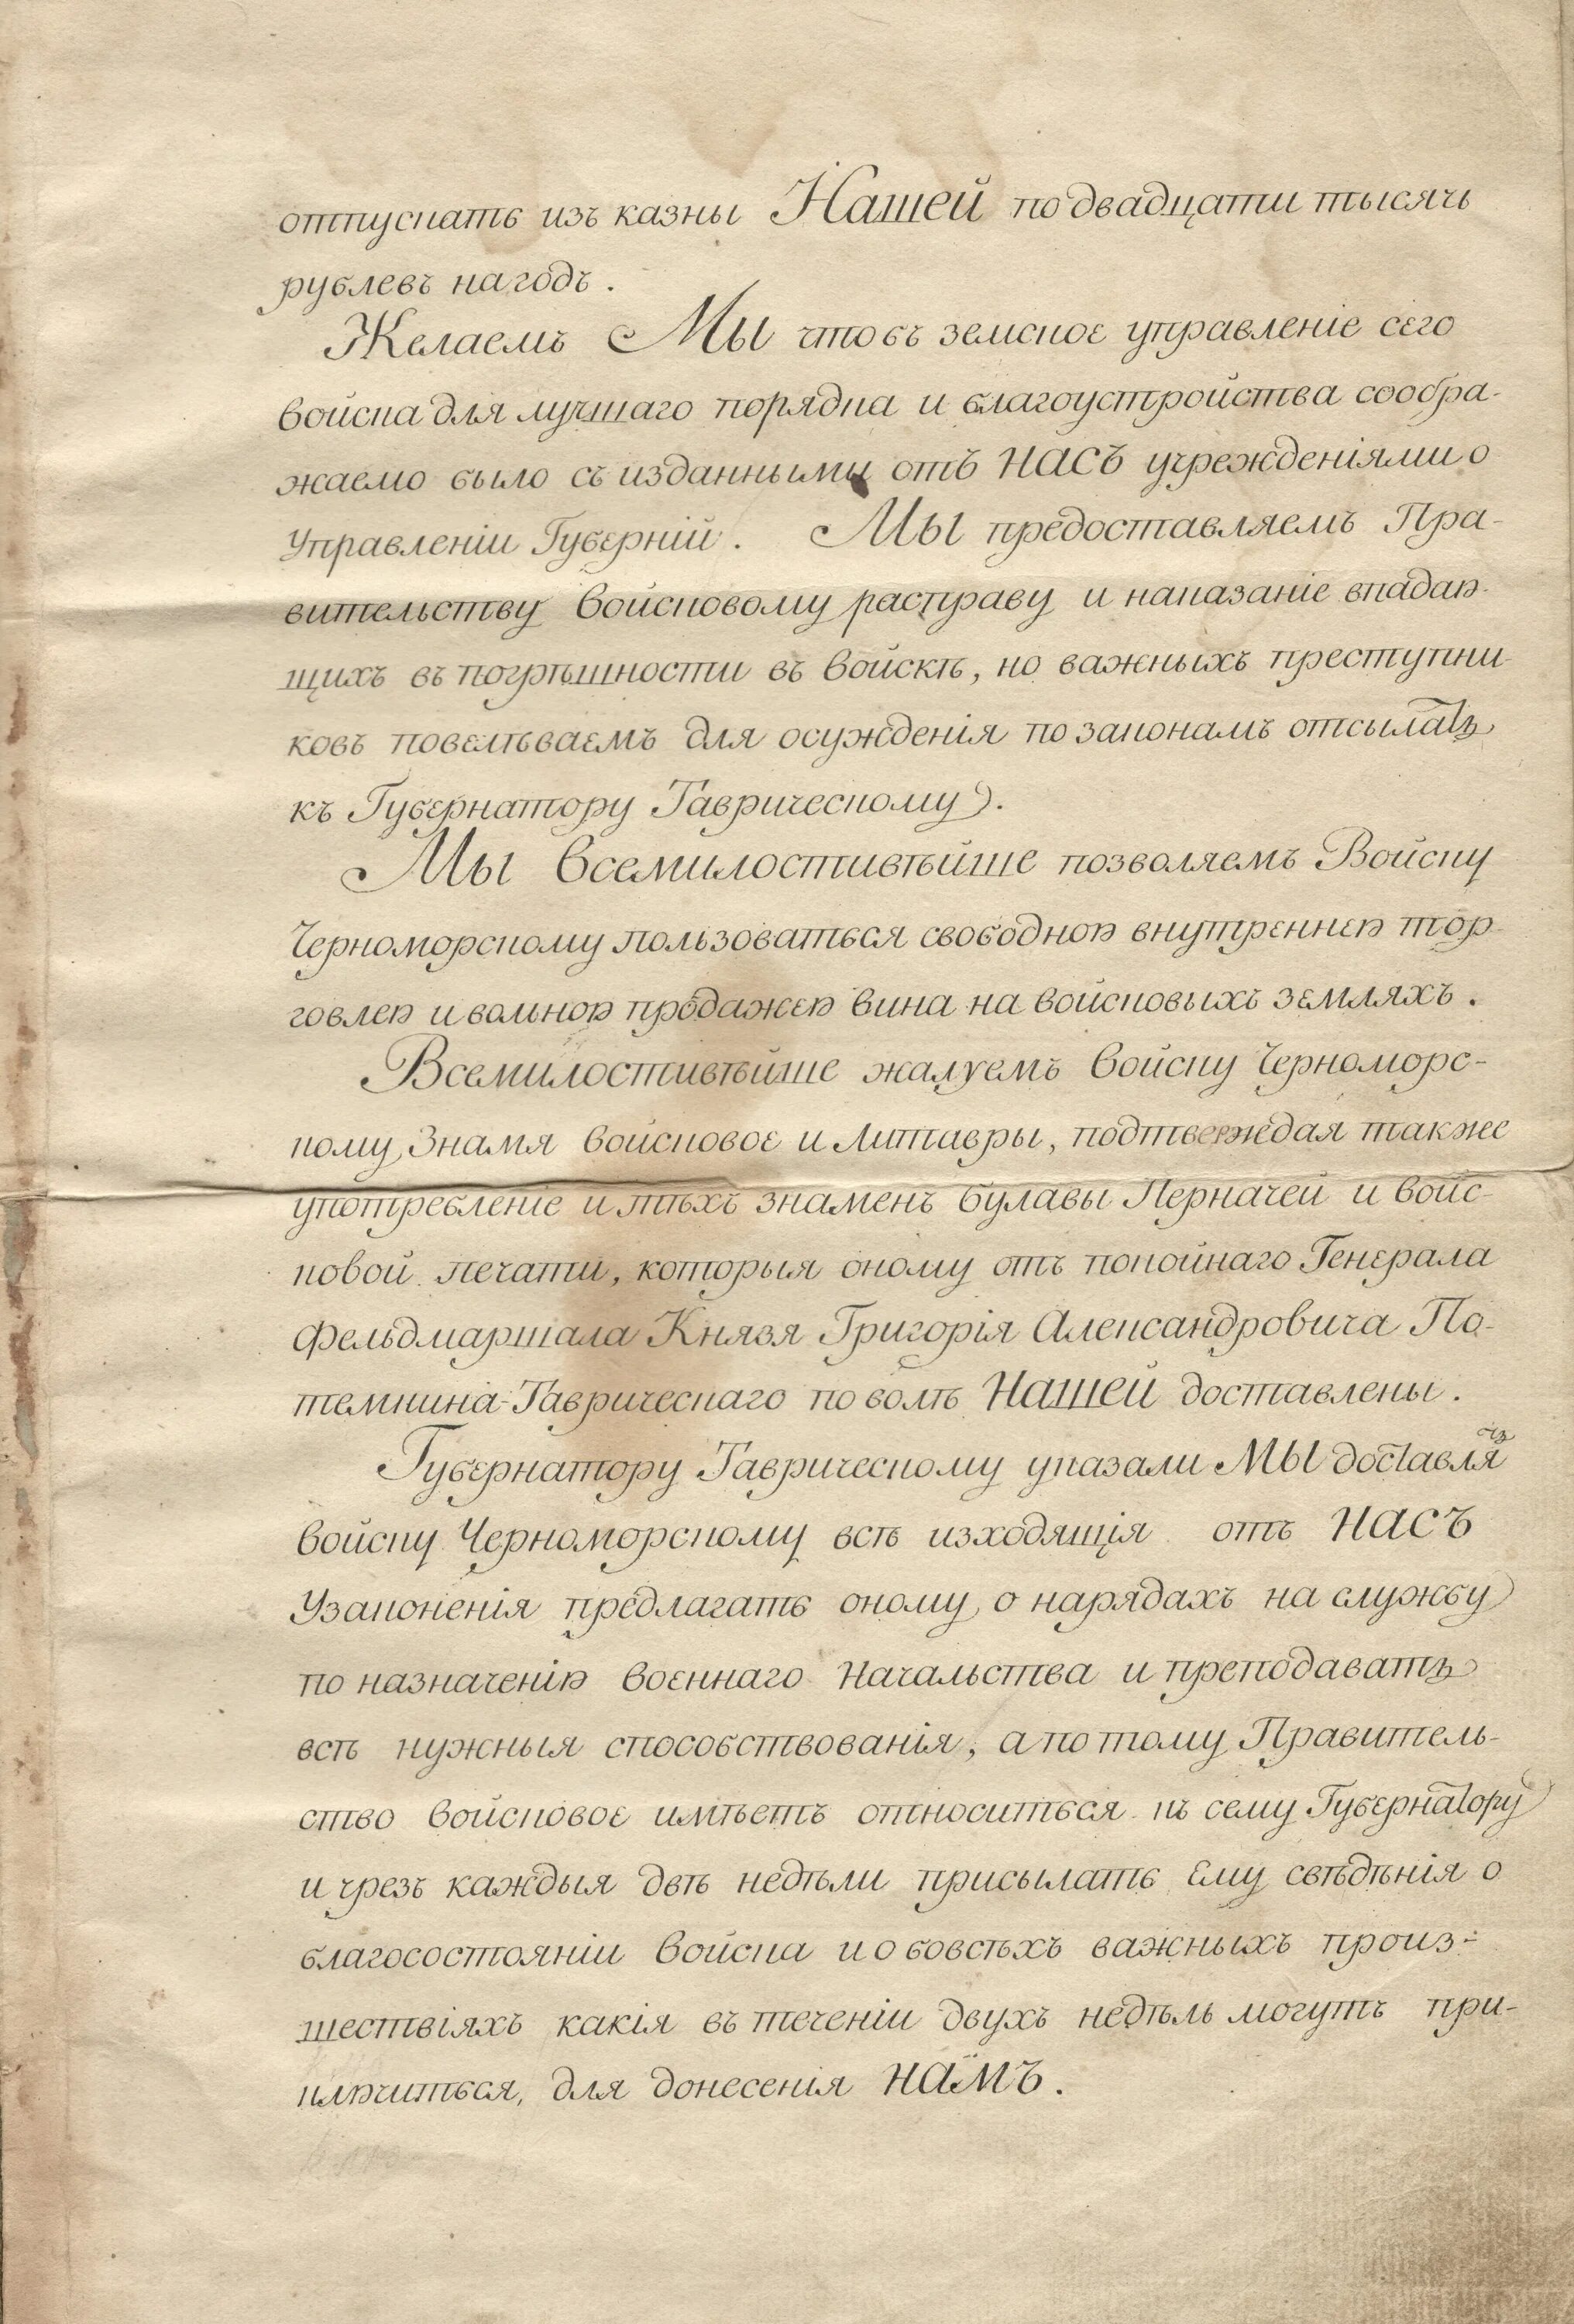 отпускать изъ казны Нашей по двадцати тысячь
рублевъ на годъ.
Желаемъ Мы чтобъ земское управленіе сего
войска для лучшаго порядка и благоустройства сообра-
жаемо было съ изданными отъ НАСЪ учрежденіями о
Управленіи Губерній. Мы предоставляемъ Пра-
вительству войсковому расправу и наказаніе впадаю-
щихъ въ погрѣшности въ войскѣ, но важныхъ преступни-
ковъ повелѣваемъ для осужденія по законамъ отсылать
къ Губернатору Таврическому.
Мы всемилостивѣйше позволяемъ Войску
Черноморскому пользоваться свободною внутреннею тор-
говлею и вольною продажею вина на войсковыхъ земляхъ.
Всемилостивѣйше жалуемъ войску Черноморс-
кому Знамя войсковое и Литавры, подтверждая также
употребленіе и тѣхъ знаменъ булавы Перначей и войс-
ковой печати, которыя оному отъ покойнаго Генерала
Фельдмаршала Князя Григорія Александровича По-
темкина-Таврическаго по волѣ НАШЕЙ доставлены.
Губернатору Таврическому указали МЫ доставлять
войску Черноморскому всѣ изходящія отъ НАСЪ
Узаконенія предлагать оному о нарядахъ на службу
по назначенію военнаго Начальства и преподавать
всѣ нужныя способствованія, а по тому Правитель-
ство войсковое имѣетъ относиться къ сему Губернатору
и чрезъ каждыя двѣ недѣли присылать Ему свѣдѣнія о
благосостояніи войска и о бовсѣхъ важныхъ произ-
шествіяхъ какія въ теченіи двухъ недѣль могутъ при-
ключиться, для донесенія НАМЪ.